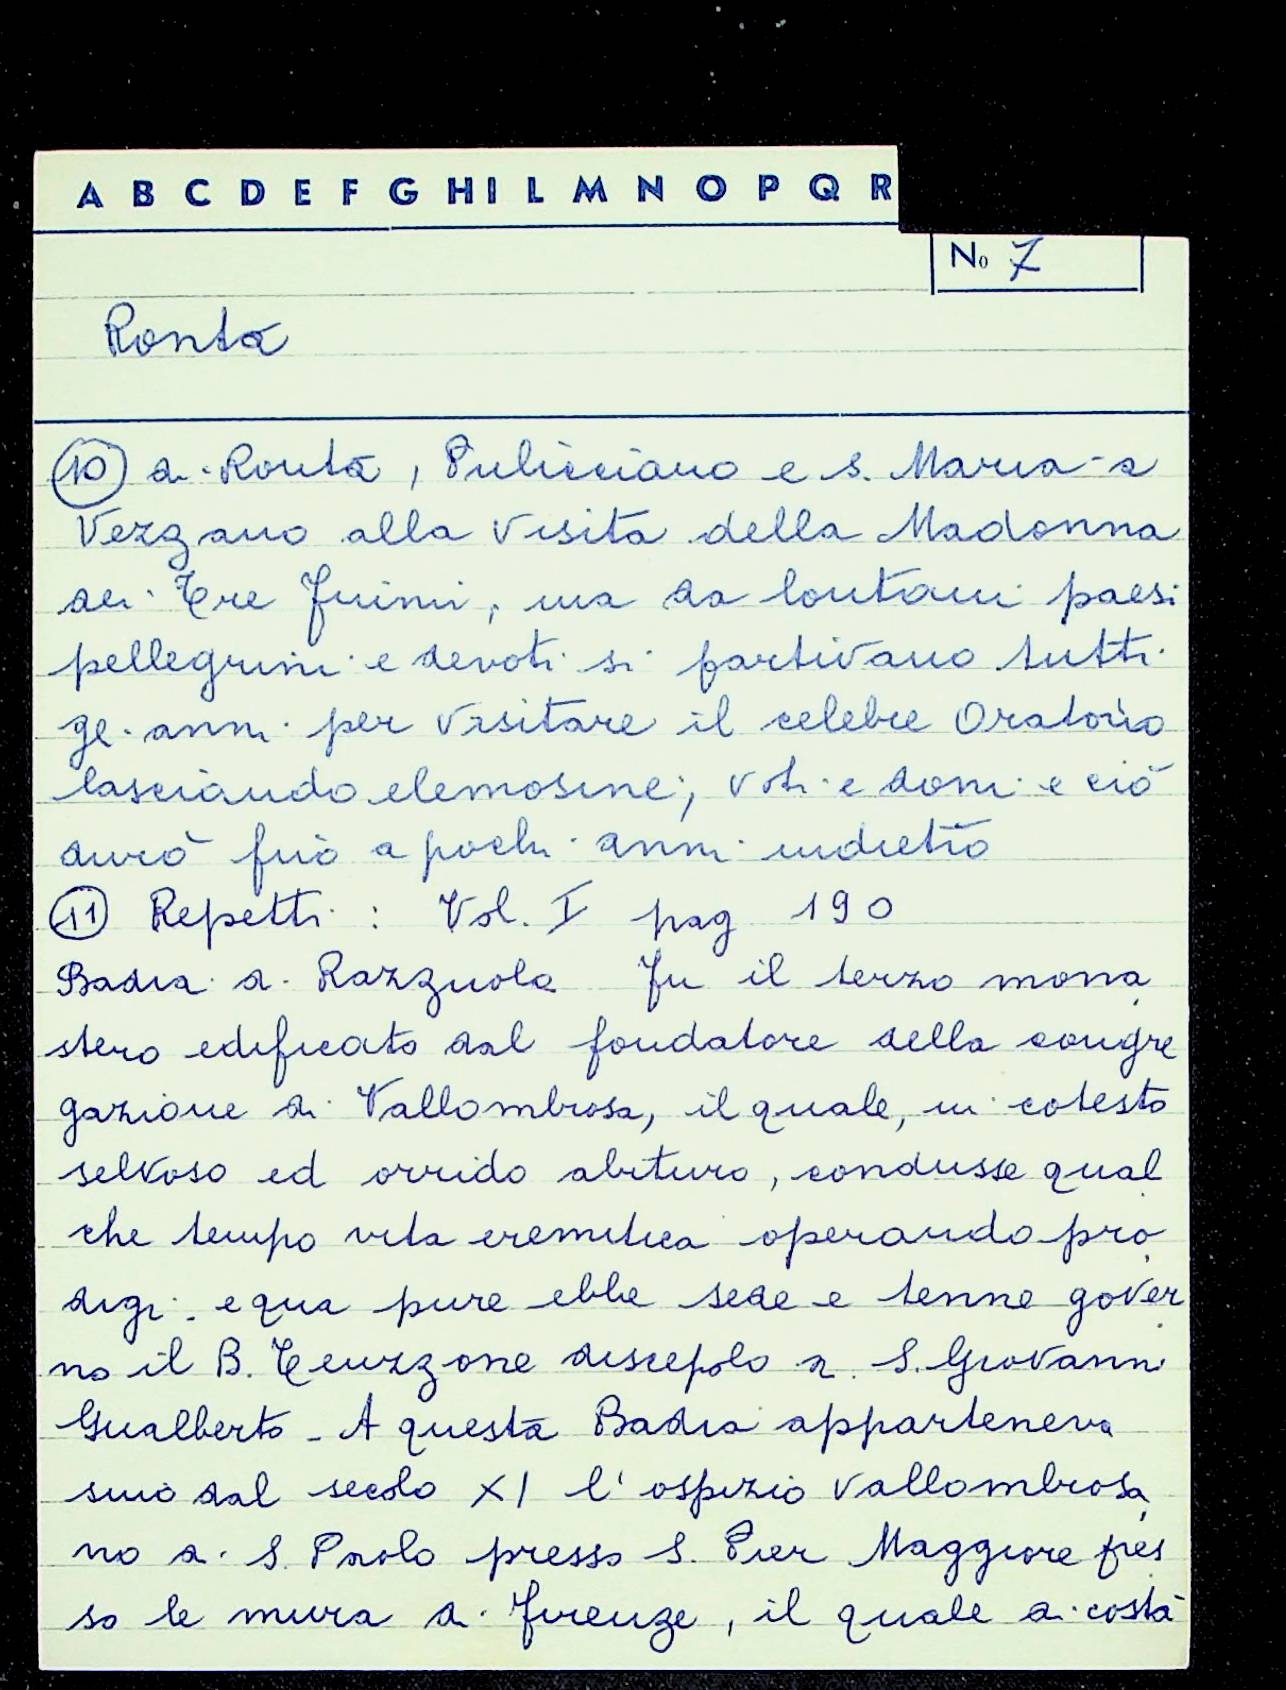 A B C D E F G H I L M N O P Q R
No 7
Ronta
10 di Ronta, Pulicciano e S. Maria a
Vezzano alla visita della Madonna
dei Tre fiumi, ma da lontani paesi
pellegrini e devoti si partivano tutti
gli anni per visitare il celebre Oratorio
lasciando elemosine, voti e doni e ciò
durò fino a pochi anni indietro
11 Repetti : Vol. I pag 190
Badia di Razzuola Fu il terzo mona
stero edificato dal fondatore della congre
gazione di Vallombrosa, il quale, in cotesto
selvoso ed orrido abituro, condusse qual
che tempo vita eremitica operando pro
digi. e qua pure ebbe sede e tenne gover
no il B. Teuzzone discepolo di S. Giovanni
Gualberto - A questa Badia apparteneva
sino dal secolo XI l'ospizio vallombrosa
no di S. Paolo presso S. Pier Maggiore pres
so le mura di Firenze, il quale di costà